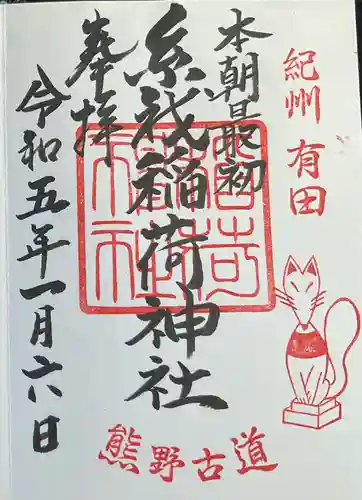 紀州 有田
本朝最初
糸我稲荷神社
奉拝
令和五年一月六日
稲荷神社
熊野古道